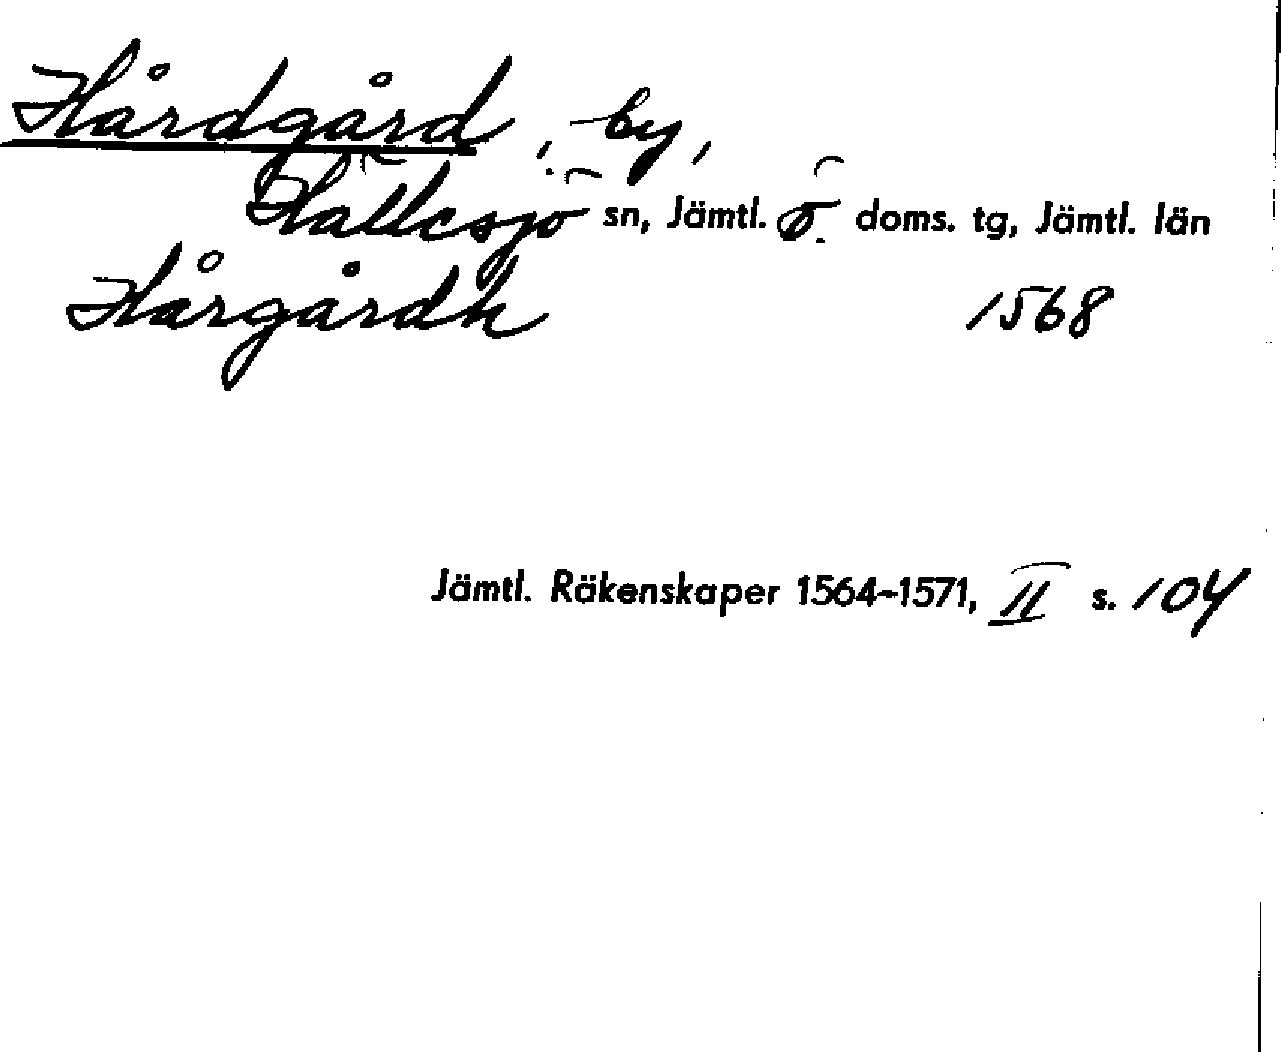 Hårdgård, by,
Hällesjö sn, Jämtl. ö. doms. tg, Jämtl. län
Hårgårdh 1568
Jämtl. Räkenskaper 1564-1571, II s. 104